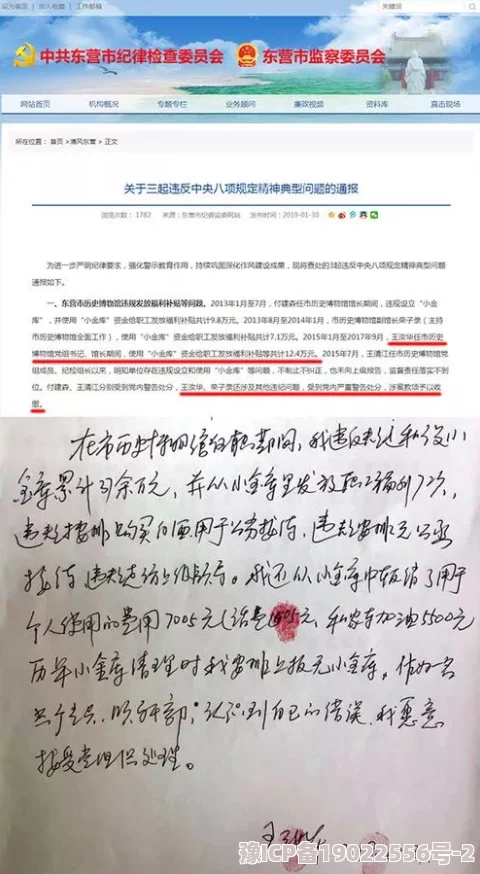 设为首页 | 加入收藏 | 工作邮箱
关键词
中共东营市纪律检查委员会 东营市监察委员会
网站首页 机构概况 专题专栏 业务顾问 廉政视频 资料库 直击现场
所在位置： 首页 >清风东营 > 正文
关于三起违反中央八项规定精神典型问题的通报
浏览次数： 1782 来源：东营市纪委监委网站 发布时间：2019-01-30
为进一步严明纪律要求，强化警示教育作用，持续巩固深化作风建设成果，现将查处的3起违反中央八项规定精神典型问题
通报如下。
一、东营市历史博物馆违规发放福利补贴等问题。2013年1月至7月，付建森任市历史博物馆馆长期间，违规设立“小金
库”，并使用“小金库”资金给职工发放福利补贴共计9.8万元。2013年8月至2014年1月，市历史博物馆副馆长荣子录（主持
市历史博物馆全面工作），使用“小金库”资金给职工发放福利补贴共计7.1万元。2015年1月至2017年9月，王汝华任市历史
博物馆党组书记、馆长期间，使用“小金库”资金给职工发放福利补贴等共计12.4万元。2015年7月，王清江任市历史博物馆党
组成员、纪检组长以来，明知单位存在违规设立和使用“小金库”等问题，不制止不纠正，也未向上级报告，监督责任落实不到
位。付建森、王清江分别受到党内警告处分，王汝华、荣子录还涉及其他违纪问题，受到党内严重警告处分，涉案款项予以收
缴。
在市历史博物馆任职期间，我违规违纪私设小
金库累计 余万元，并从小金库里发放职工福利72次，
违规安排购买 酒用于公务接待，违规安排无公函
接待 违规走访上级领导。我还从小金库中报销了用于
个人使用的费用7005元（话费1505元、私家车加油5500元
历年小金库清理时我安排上报无小金库，作为一名
党员、领导干部，认识到自己的错误，我愿意
接受党组织处理。
王汝华
豫ICP备19022556号-2